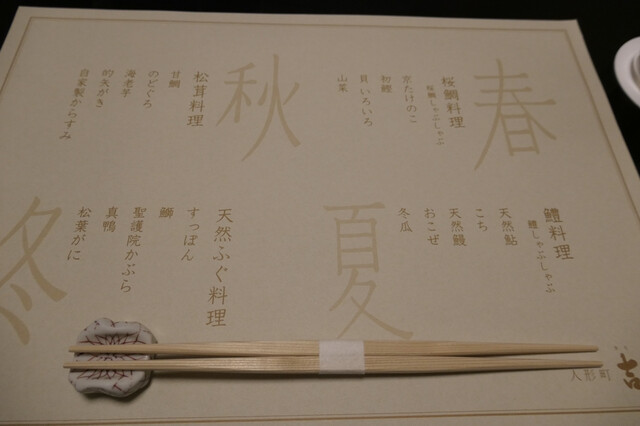 春
桜鯛料理
桜鯛しゃぶしゃぶ
京たけのこ
初鰹
貝いろいろ
山菜
夏
鱧料理
鱧しゃぶしゃぶ
天然鮎
こち
天然鰻
おこぜ
冬瓜
秋
松茸料理
甘鯛
のどぐろ
海老芋
的矢がき
自家製からすみ
冬
天然ふぐ料理
すっぽん
鰤
聖護院かぶら
真鴨
松葉がに
人形町